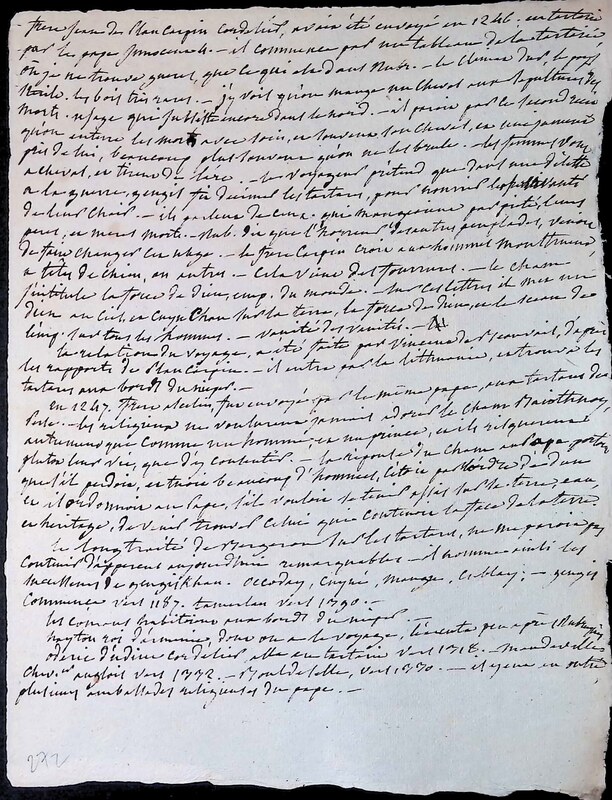 frere jean de Plan Carpin cordelier, avoit été envoyé en 1246. en tartarie
par le pape Innocent 4. — il commence par un tableau de la tartarie
où je ne trouve guere, que ce qui est dans Rubr. — le climat dur, le pays
sterile. les bois très rares. — j'y vois qu'on mange un cheval aux sepultures des
morts. usage qui subsiste encore dans le nord. — il paroit par ce second recit
qu'on enterre les morts avec soin, et souvent son cheval, et une jument
près de lui, beaucoup plus souvent qu'on ne les brule. — les femmes vont
a cheval, et tirent de l'arc. — le voyageur prétend que dans une disette
a la guerre, gengis fit décimer les tartares, pour nourrir les
de leur chair. — il parle de ceux qui mangeoient par piété, leurs
peres, et meres morts. — Rub. dit que l'horreur des autres peuplades, venoit
de faire changer cet usage. — le frere Carpin croit aux hommes
a tetes de chien, ou autres. — cela vient des fourrures. — le cham
s'intitule la force de dieu, emp. du monde. — sur ses lettres il met un
dieu au ciel, et Cuyné Cham sur la terre, la force de dieu, et le sceau de
l'emp. sur tous les hommes. — vanité des vanités. —
la relation du voyage, a été faite par Vincent de Beauvais, d'apres
les rapports de Plan Carpin. — il entre par la lithuanie, et trouve les
tartares aux bords du nieper. —
en 1247. frere ascelin, fut envoyé par le même pape, aux tartares de
Perse. — les religieux ne voulurent jamais adorer le cham
autrement que comme un homme et un prince, et ils risquerent
plutot leur vie, que d'y consentir. — la réponse du cham au Pape portoit
qu'il perdoit, et tuoit beaucoup d'hommes, et cela par l'ordre de dieu
et il ordonnoit au Pape, s'il vouloit se tenir assis sur la terre, eau,
et heritage, de venir trouver celui qui contient la face de la terre
le long traité de Bergeron sur les tartares, ne me paroit pas
contenir d'apperçus aujourd'hui remarquables. — il nomme ainsi les
successeurs de gengiskhan. occoday, cuyné, mangu, coblay; — gengis
commence vers 1187. tamerlan vers 1390. —
les comans habitoient aux bords du nieper —
hayton roi d'armenie, dont on a le voyage, l'executa peu après Rubruquis
oderic d'udine cordelier alla en tartarie vers 1318. — mandeville
chev.er anglois vers 1332. — Bouldeselle, vers 1330. — il y eut en outre
plusieurs ambassades religieuses du pape. —
272